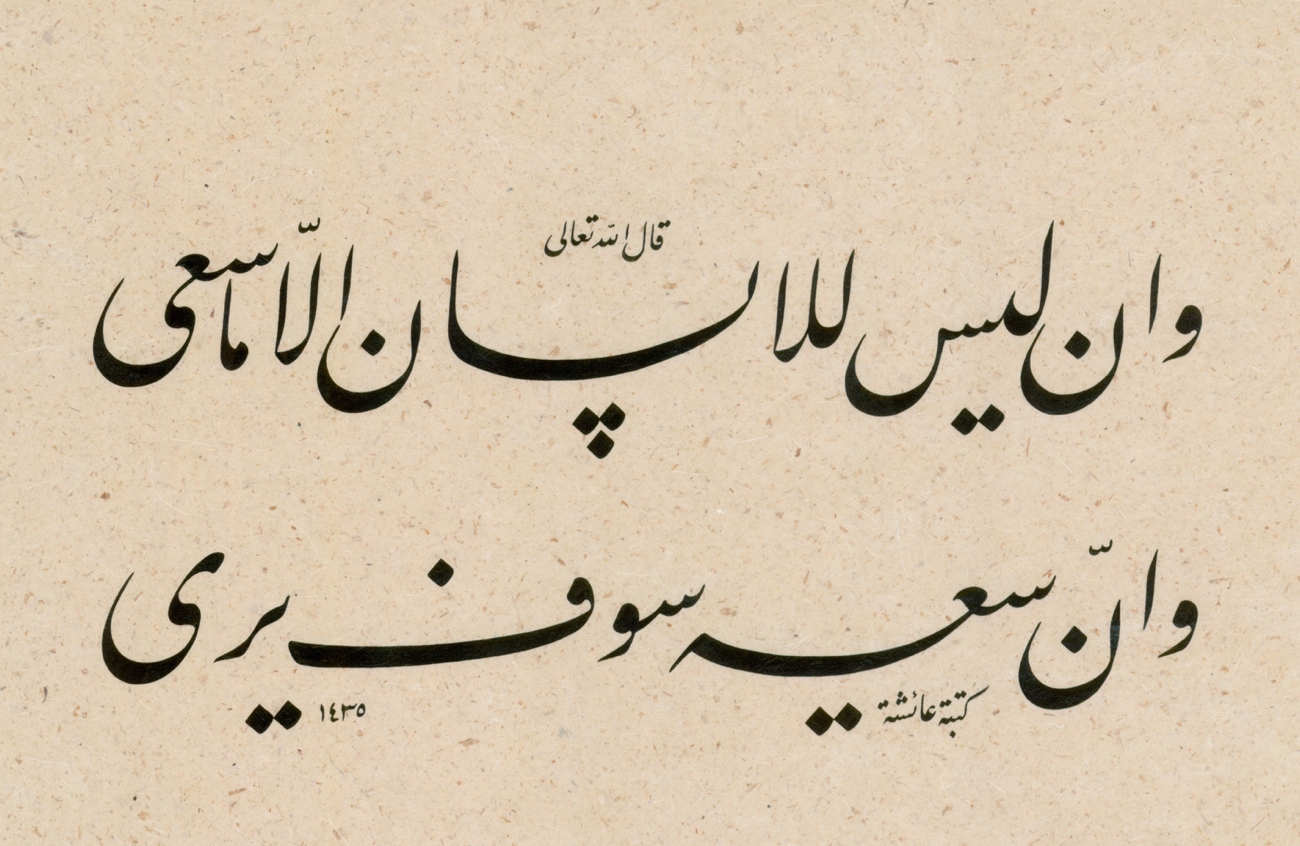 قال الله تعالى
وان ليس للانسان الّا ما سعى
وانّ سعيه سوف يرى
كتبته عائشة
١٤٣٥